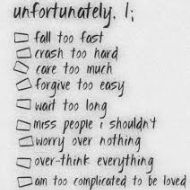 unfortunately. I;
fall too fast
crash too hard
care too much
forgive too easy
wait too long
miss people i shouldn't
worry over nothing
over-think everything
am too complicated to be loved